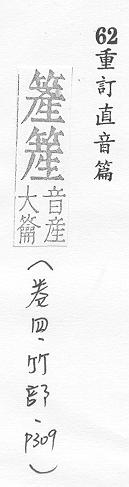 62重訂直音篇
簅
音産
大籥
(卷四·竹部·p309)